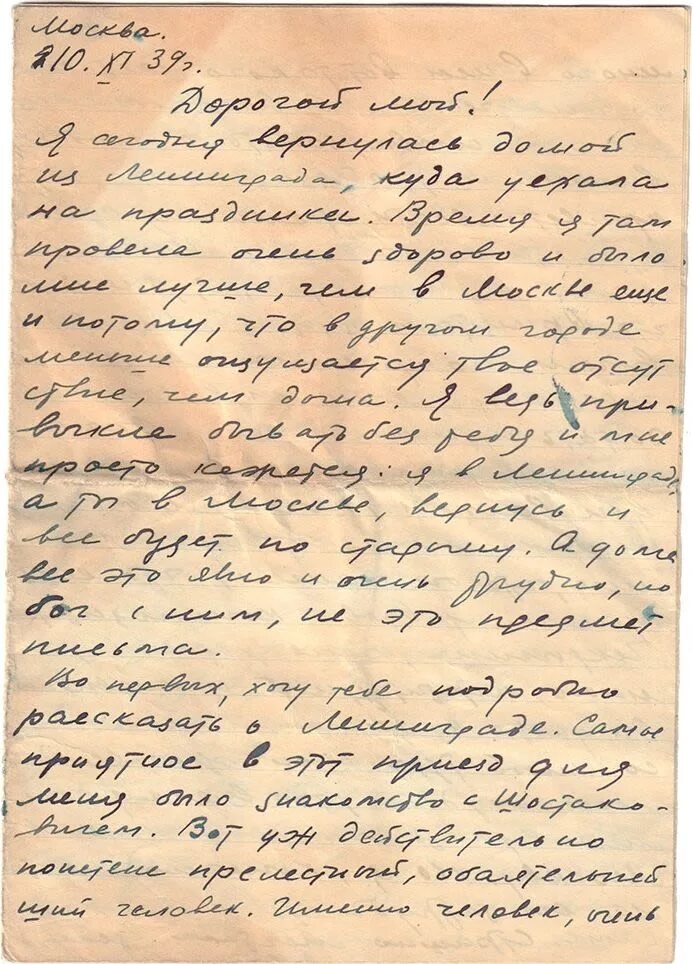 Москва.
10. XI 39г.
Дорогой мой!
Я сегодня вернулась домой
из Ленинграда, куда уехала
на праздники. Время я там
провела очень здорово и было
мне лучше, чем в Москве еще
и потому, что в другом городе
меньше ощущается твое отсут
ствие, чем дома. Я ведь при-
выкла бывать без тебя и мне
просто кажется: я в Ленинграде,
а ты в Москве, вернусь и
все будет по старому. А дома
все это явно и очень трудно, но
бог с ним, не это предмет
письма.
Во первых, хочу тебе подробно
рассказать о Ленинграде. Самое
приятное в этот приезд для
меня было знакомство с Шостако-
вичем. Вот уж действительно
поистене прелестный, обаятельней
ший человек. Именно человек, очень